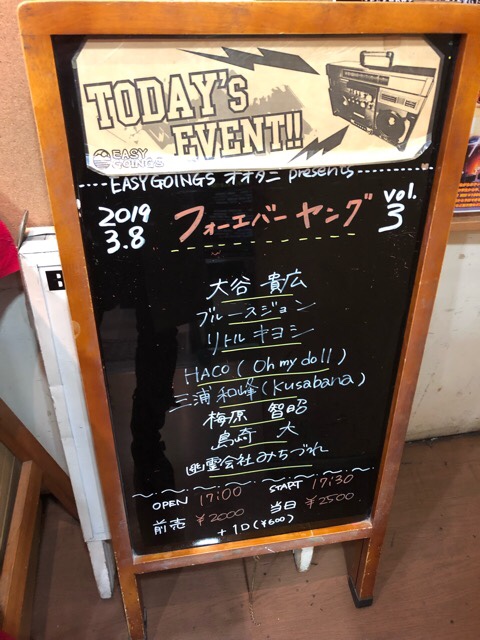 TODAY'S
EVENT!!
EASY
GOINGS
EASYGOINGS オオタニ presents
2019
3.8
フォーエバー ヤング
vol.
3
大谷 貴広
ブルースジョン
リトル キヨシ
HACO (Oh my doll)
三浦 和峰 (Kusabana)
梅原 智昭
島崎 大
幽霊会社みちづれ
OPEN 17:00 START 17:30
前売 ¥2000 当日 ¥2500
+1D (¥600)